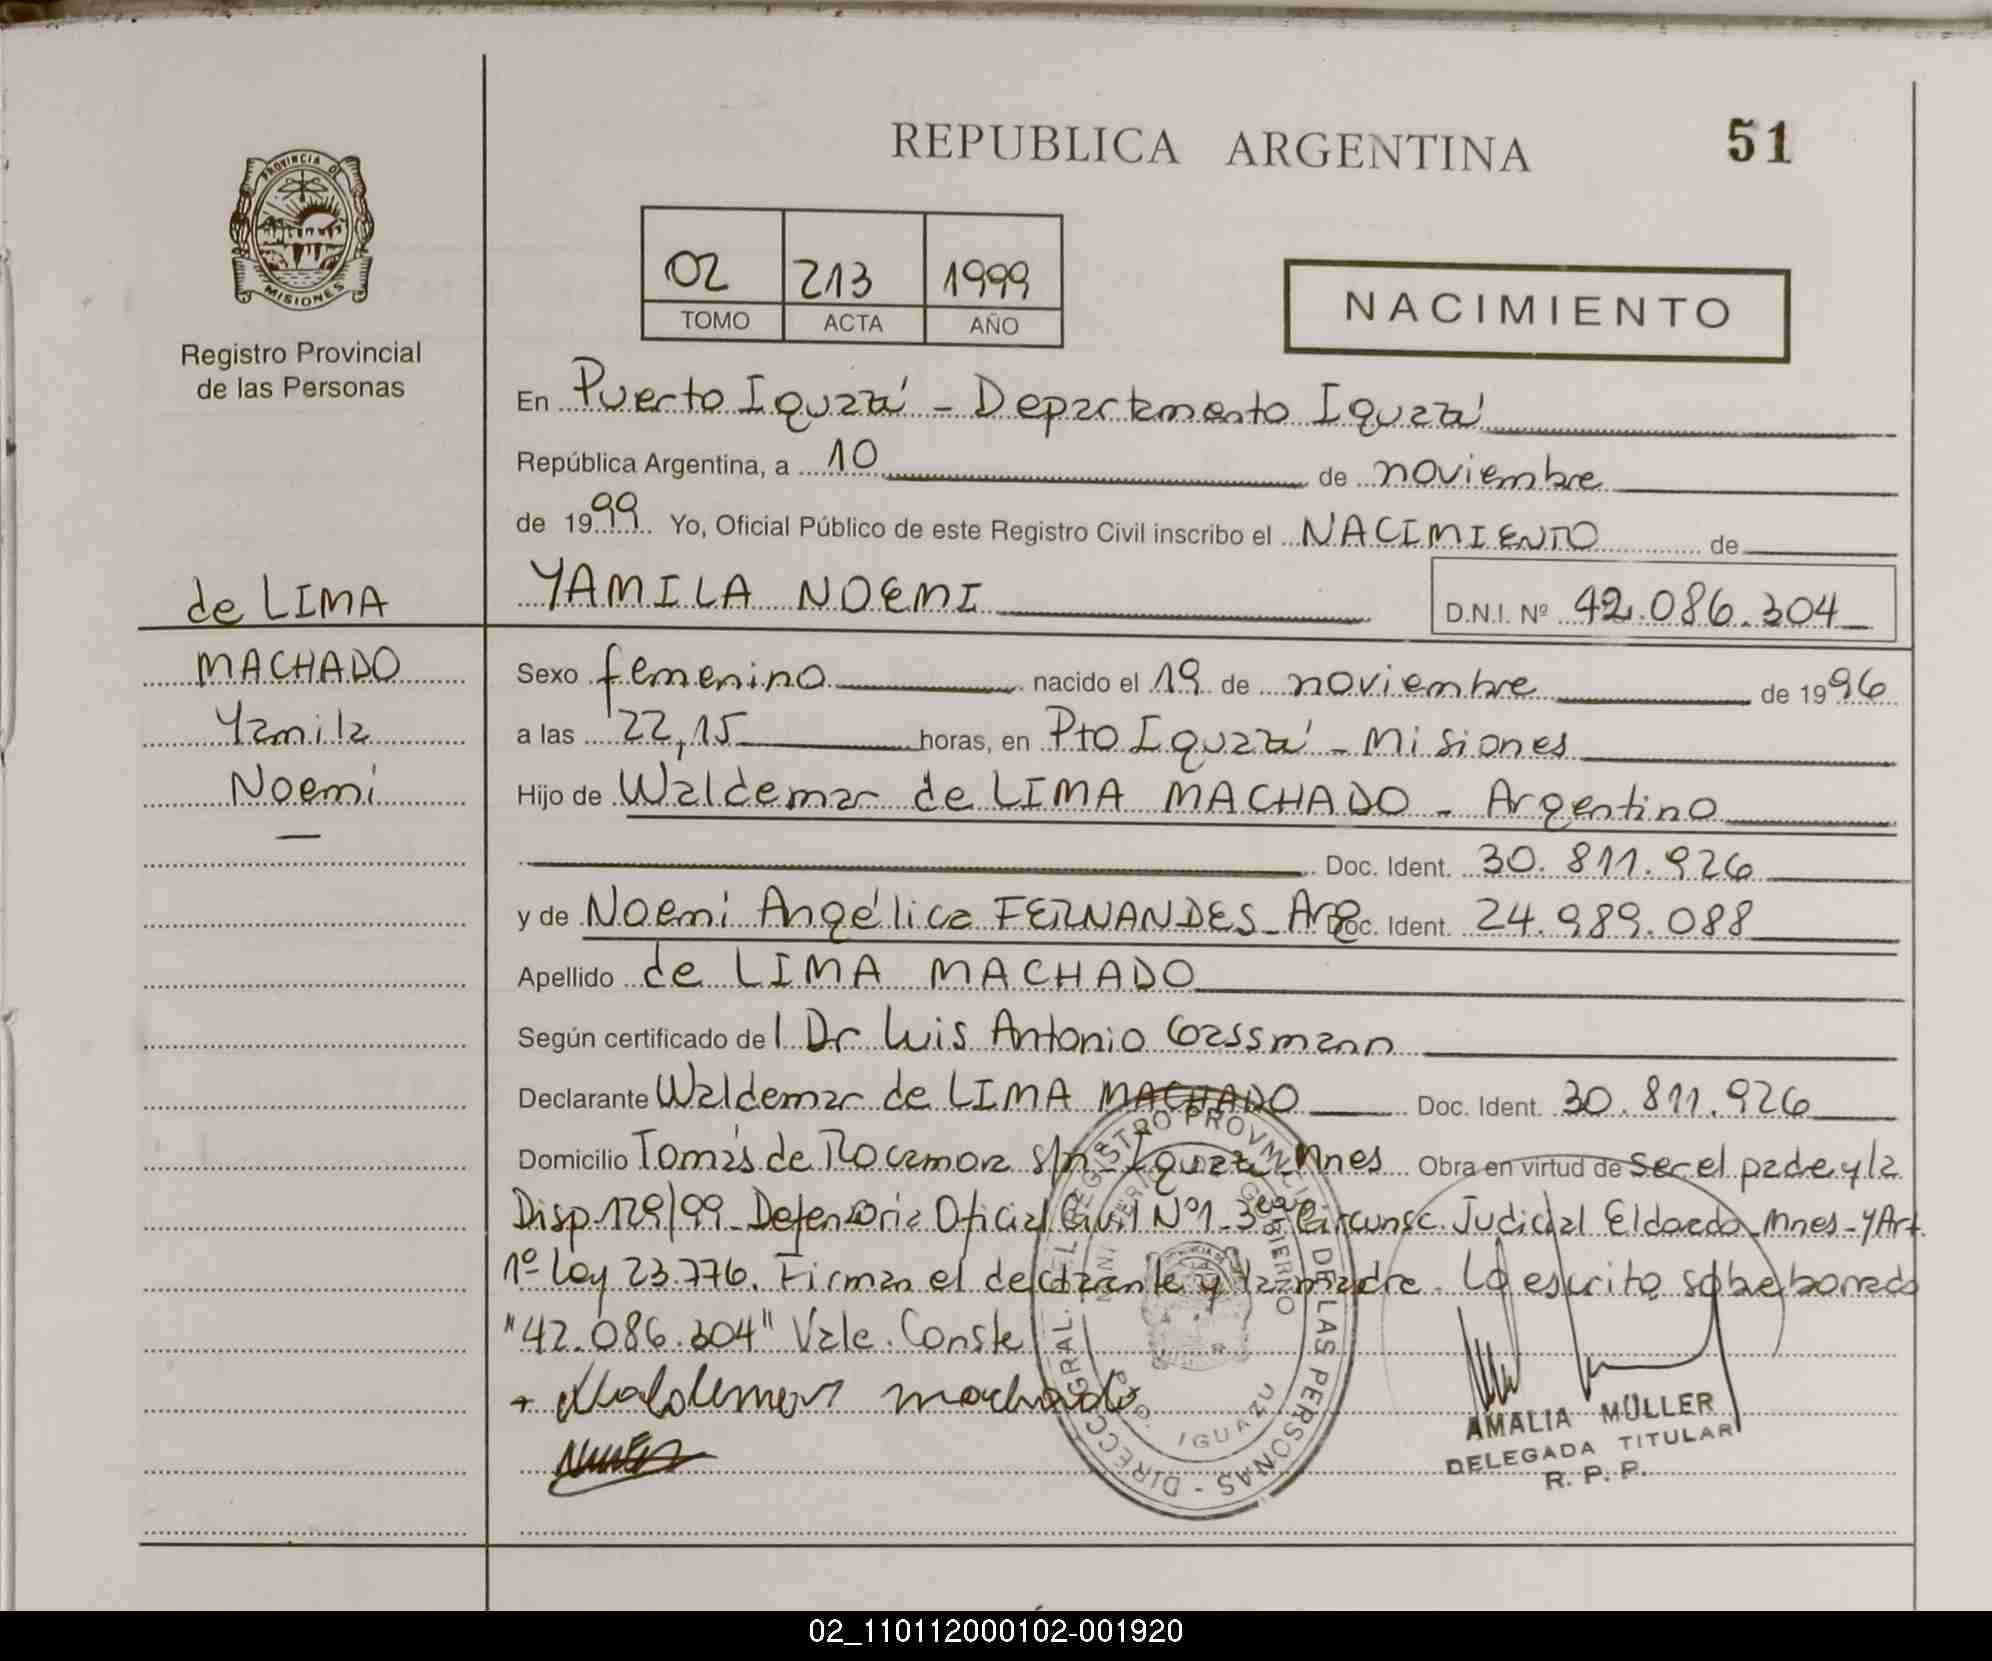 REPUBLICA ARGENTINA
51
PROVINCIA DE
MISIONES
Registro Provincial
de las Personas
02 213 1999
TOMO ACTA AÑO
NACIMIENTO
En Puerto Iguazú - Departamento Iguazú
República Argentina, a 10 de noviembre
de 1999 Yo, Oficial Público de este Registro Civil inscribo el NACIMIENTO de
YAMILA NOEMI D.N.I. Nº 42.086.304
de LIMA
MACHADO
Yamila
Noemi
Sexo femenino nacido el 19 de noviembre de 1996
a las 22,15 horas, en Pto Iguazú - Misiones
Hijo de Waldemar de LIMA MACHADO - Argentino
Doc. Ident. 30.811.926
y de Noemi Angélica FERNANDES - Arg Doc. Ident. 24.989.088
Apellido de LIMA MACHADO
Según certificado de l Dr Luis Antonio Gassmann
Declarante Waldemar de LIMA MACHADO Doc. Ident. 30.811.926
Domicilio Tomás de Rocamora s/n - Iguazú - Mnes Obra en virtud de ser el padre y la
Disp 129/99 - Defensoria Oficial Civil Nº1 - 3era Circunsc. Judicial Eldorado - Mnes - y Art.
1º Ley 23.776. Firman el declarante y la madre. Lo escrito sobre borrado
"42.086.304" Vale. Conste
+ Waldemar machado
DIRECC. GRAL. DEL REGISTRO PROVINCIAL DE LAS PERSONAS -
MINISTERIO DE GOBIERNO
IGUAZU
AMALIA MULLER
DELEGADA TITULAR
R. P. P.
02_110112000102-001920